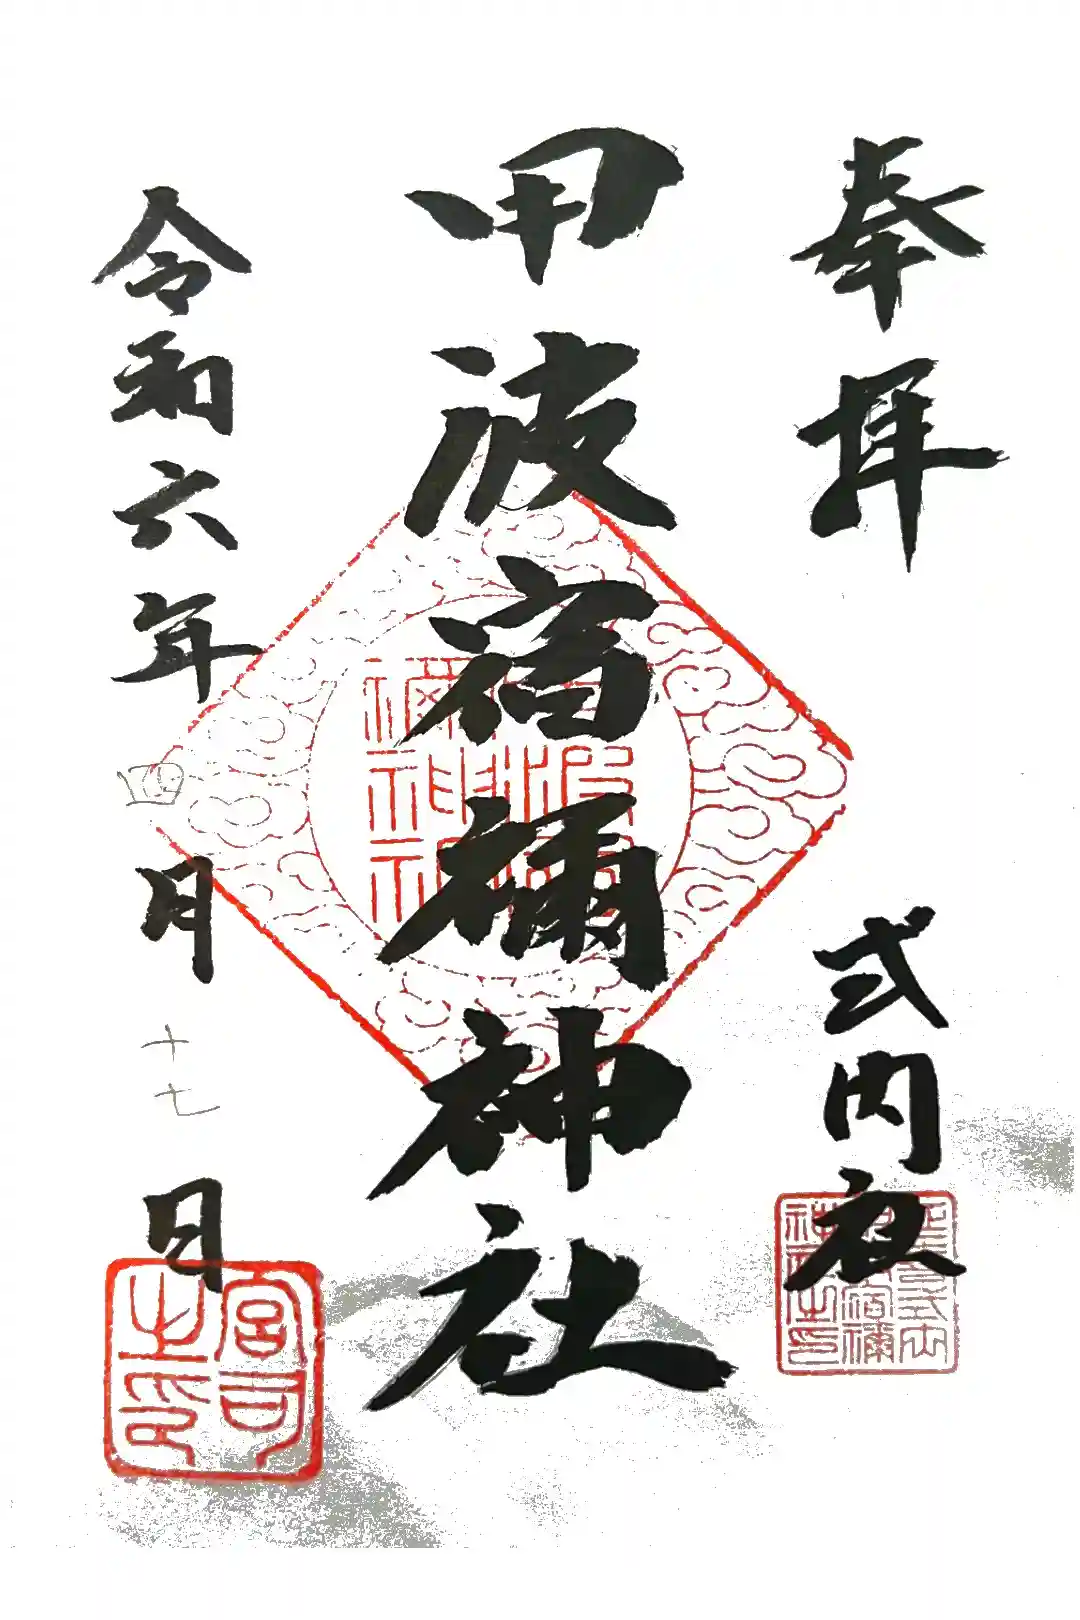 奉拝
式内
延喜式内
甲波宿禰
神社之印
甲波宿禰神社
甲波宿
禰神社
令和六年四月十七日
宮司
之印